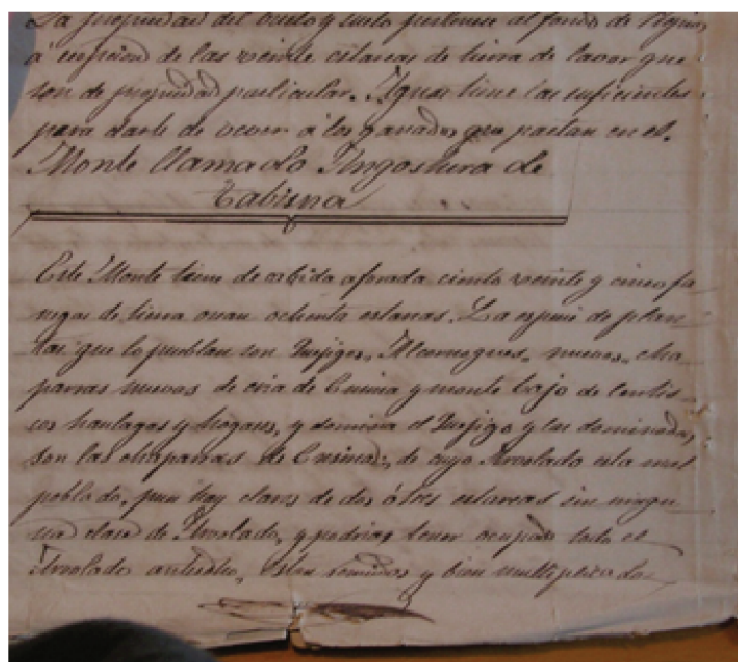 La propiedad del vuelo y suelo pertenece al fondo de Propios
á escepcion de las veinte estareas de tierra de lavor que
son de propiedad particular. Aguas tiene las suficientes
para darle de vever á los ganados que pastan en el.
Monte llamado Angostura de
Tabizna
Este Monte tiene de cabida aforada ciento veinte y cinco fa
negas de tierra ó sean ochenta estareas. La especie de plan
tas que lo pueblan son Quejigos, Alcornoques, nuevos, cha
parras nuevos de cria de Encina y monte bajo de lentis
cos haulagas y hogazos, y domina el Quejigo y los dominados,
son las chaparras de Encinas, de cuyo Arvolado esta mal
poblado, pues hay claros de dos ó tres estareas sin ningu
na clase de Arvolado, y podrian tener ocupado todo el
Arvolado antiguo, estas semillas y bien multiplicado